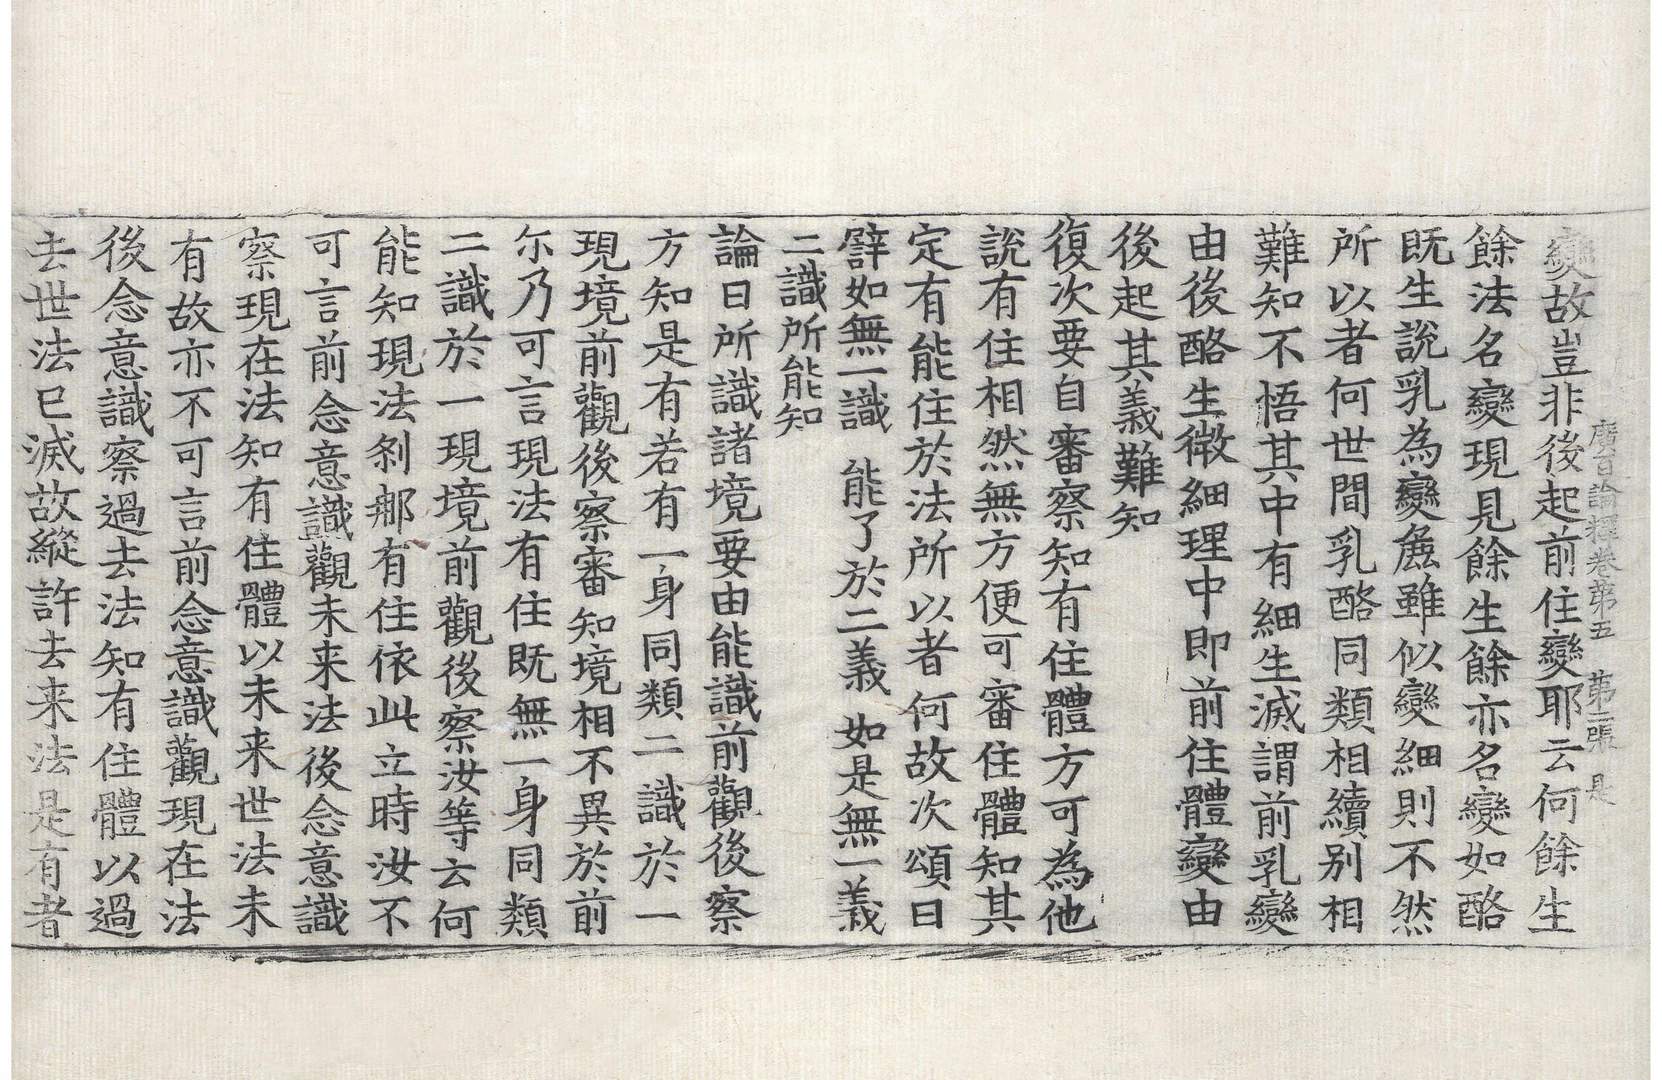 廣百論釋卷第五 第二張 是
變故豈非後起前住變耶云何餘生
餘法名變現見餘生餘亦名變如酪
既生說乳為變麁雖似變細則不然
所以者何世間乳酪同類相續别相
難知不悟其中有細生滅謂前乳變
由後酪生微細理中即前住體變由
後起其義難知
復次要自審察知有住體方可為他
說有住相然無方便可審住體知其
定有能住於法所以者何故次頌曰
譬如無一識 能了於二義 如是無一義
二識所能知
論曰所識諸境要由能識前觀後察
方知是有若有一身同類二識於一
現境前觀後察審知境相不異於前
尒乃可言現法有住既無一身同類
二識於一現境前觀後察汝等云何
能知現法剎那有住依此立時汝不
可言前念意識觀未来法後念意識
察現在法知有住體以未来世法未
有故亦不可言前念意識觀現在法
後念意識察過去法知有住體以過
去世法已滅故縱許去来法是有者